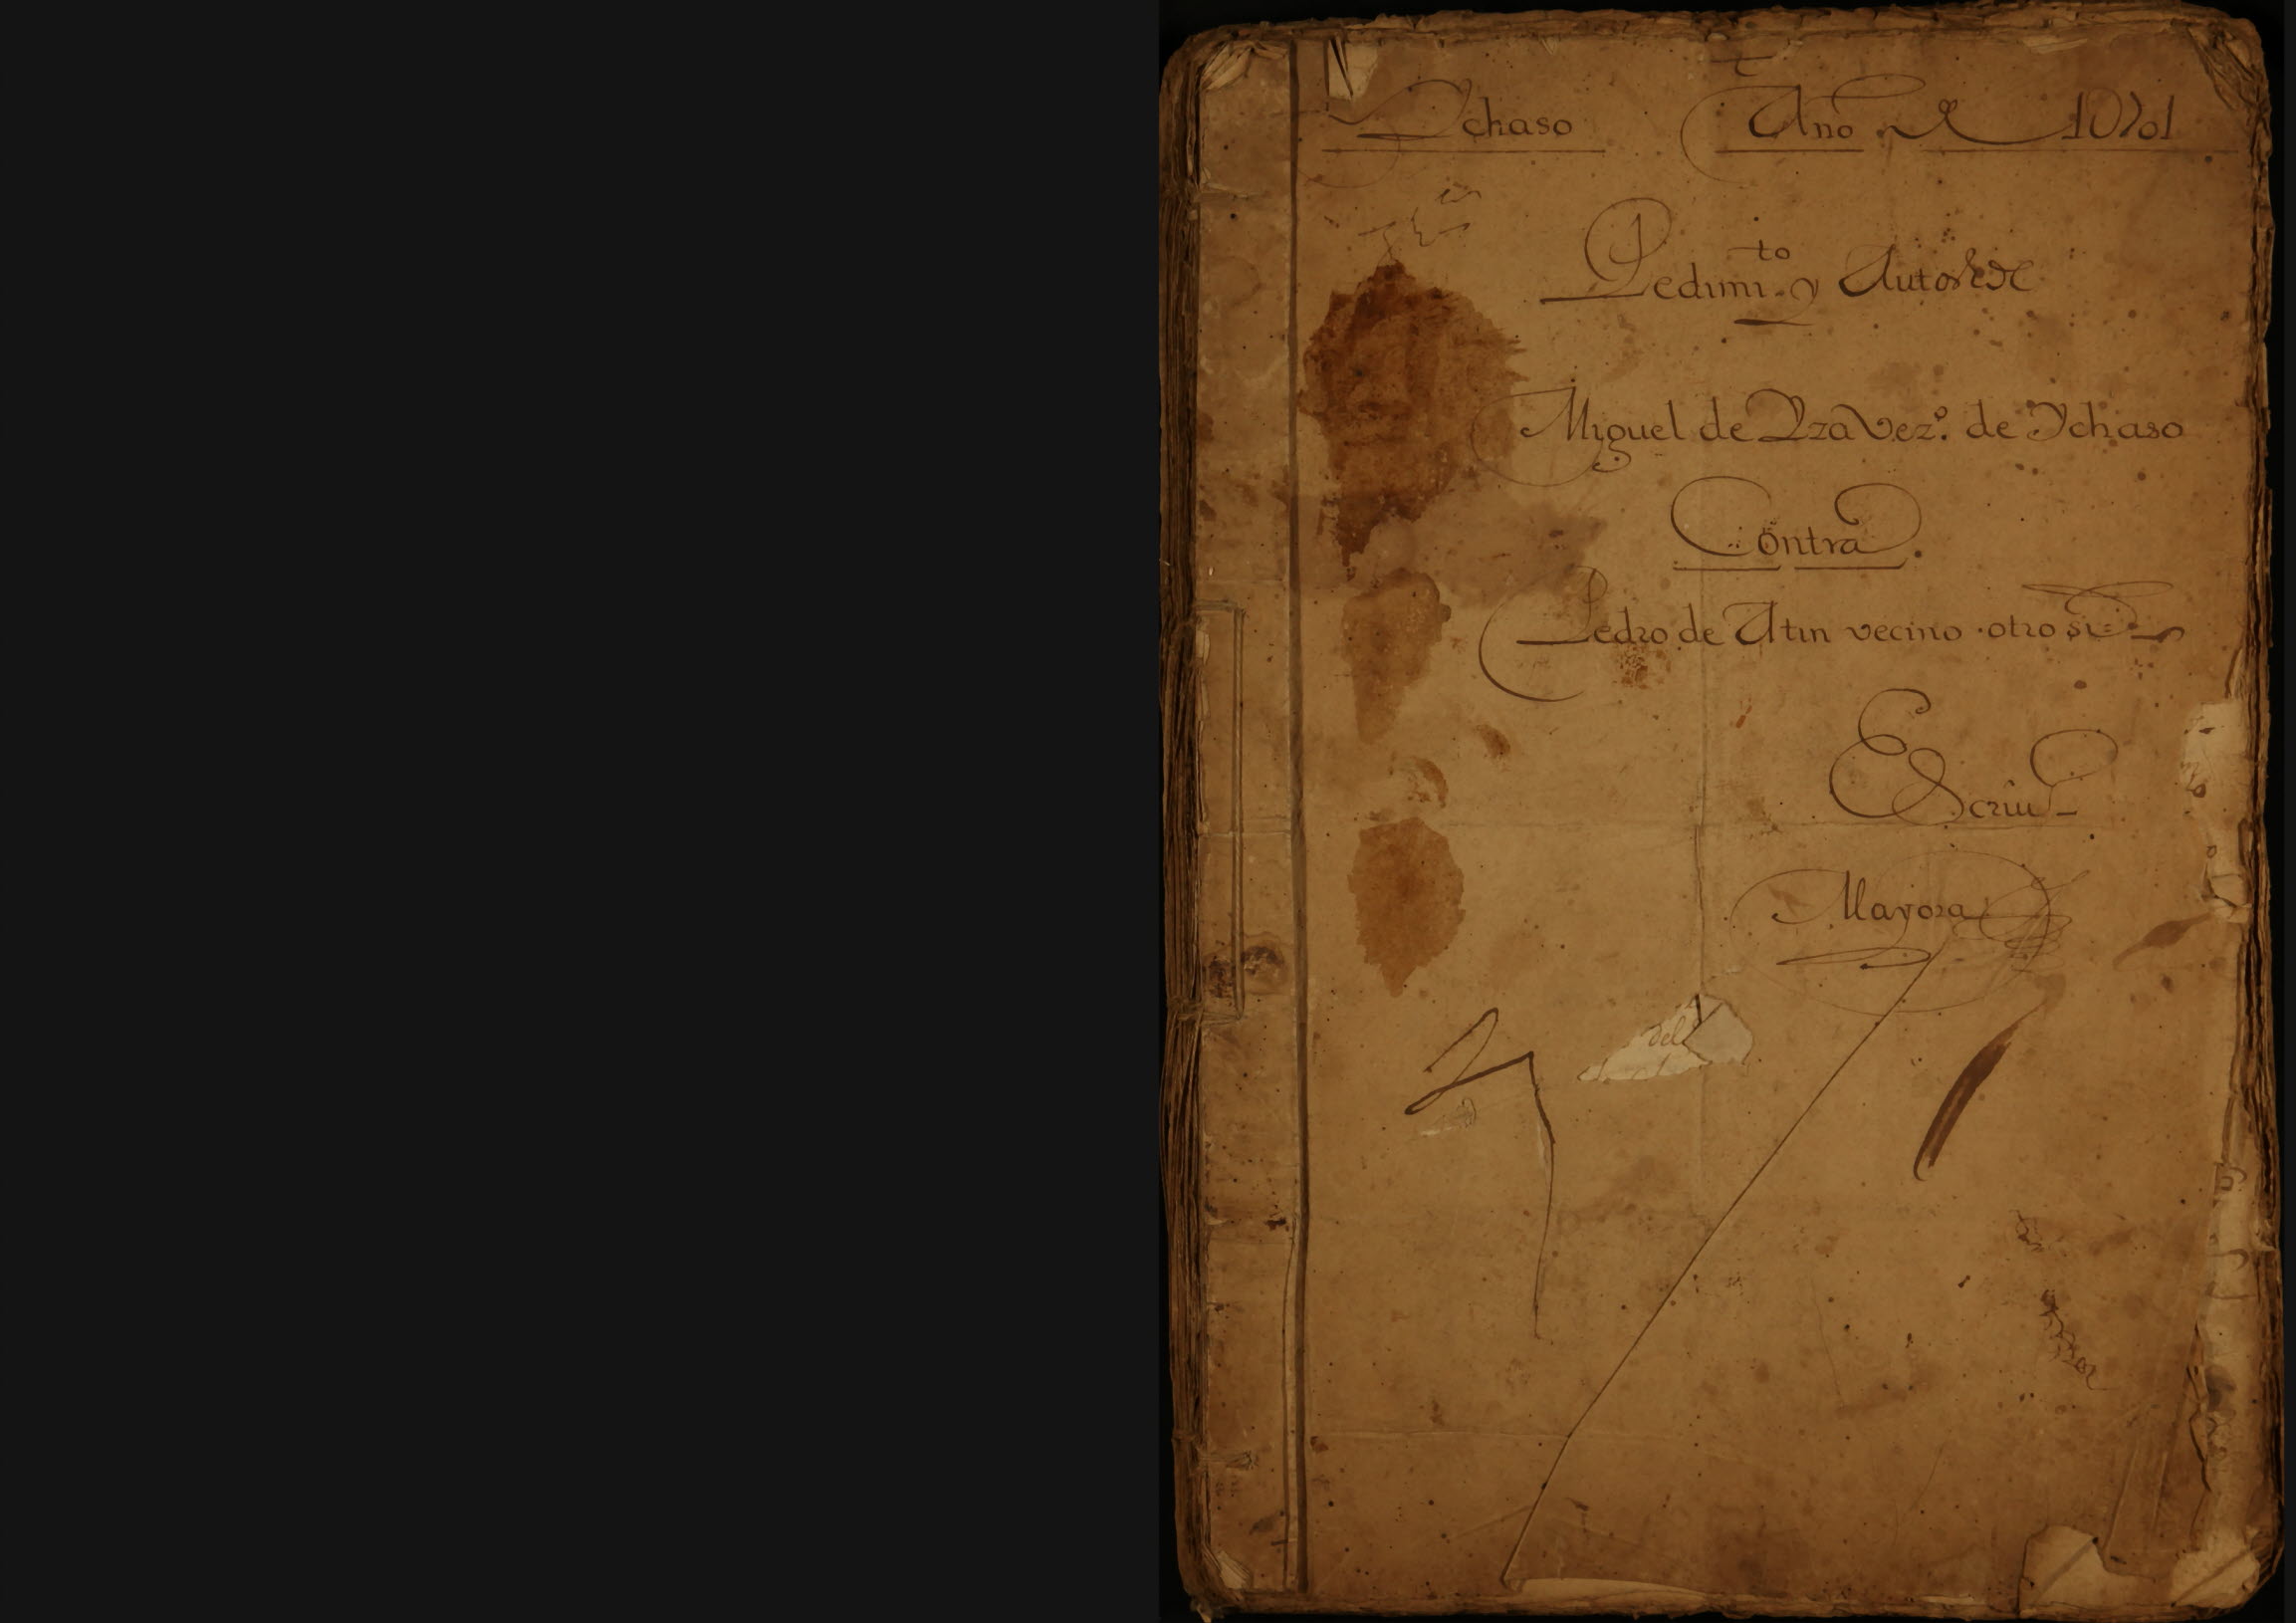 Ychaso Año de 1701
Pedimi.to y Autos de
Miguel de Yza vez.º de Ychaso
Contra
Pedro de Atin vecino otro si
Escriu
Mayora
del